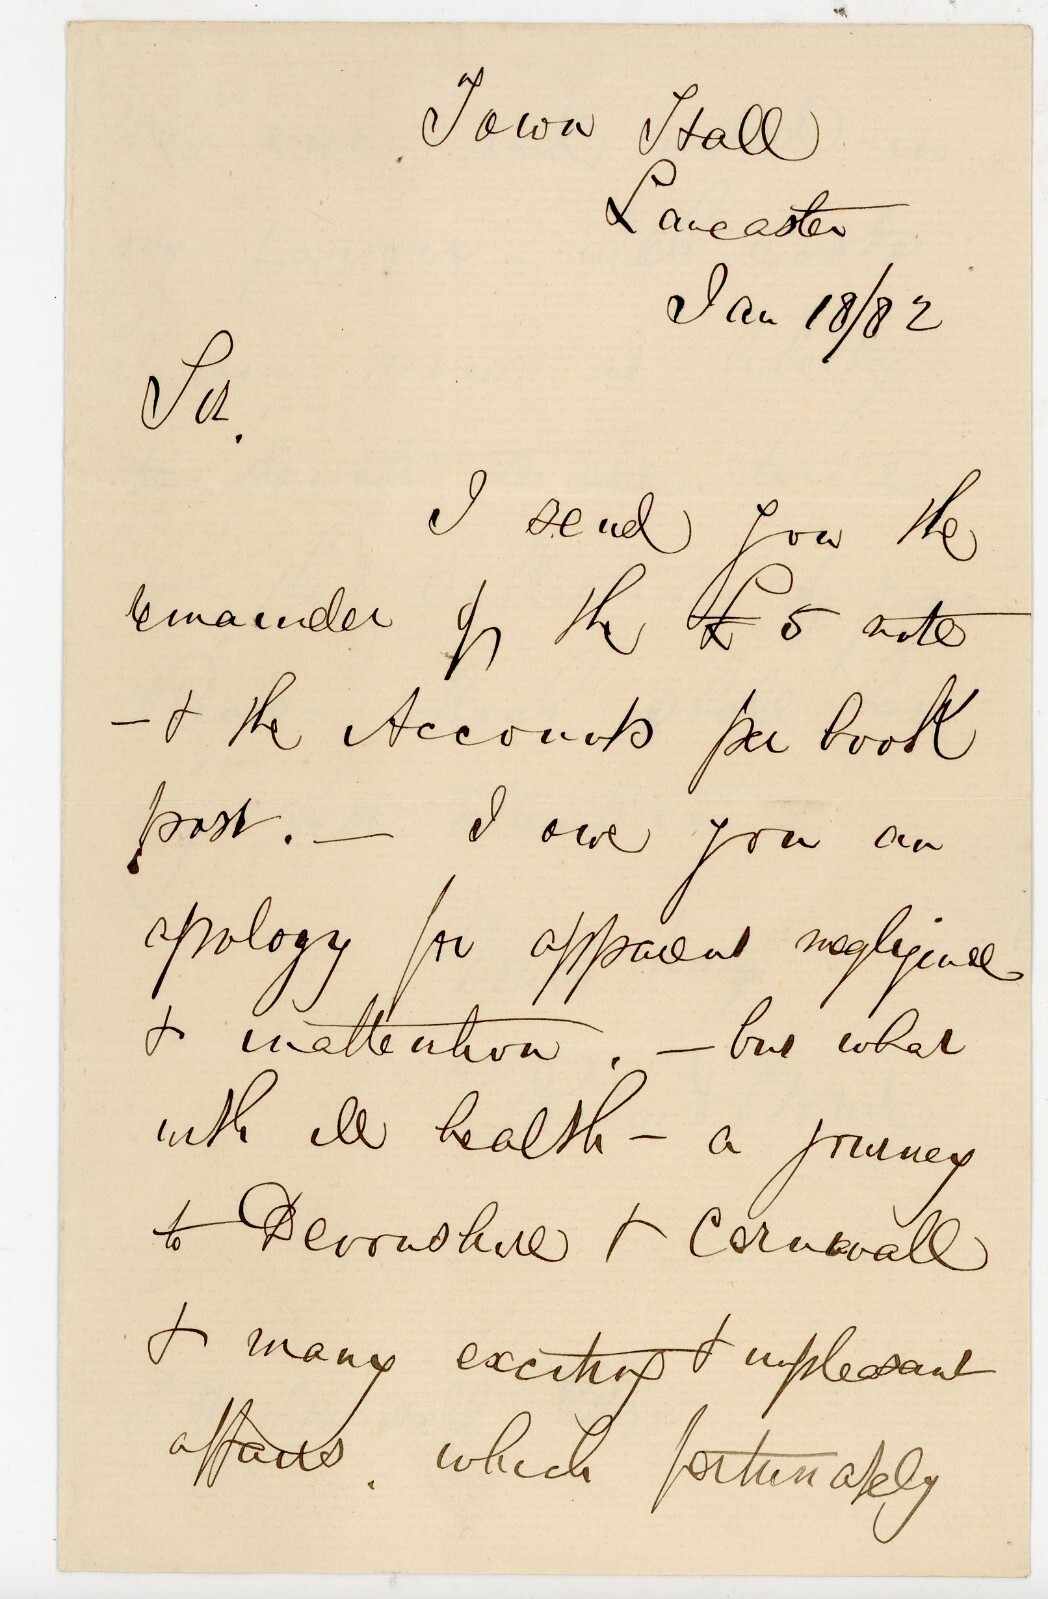 Town Hall
Lancaster
Jan 18/82
Sir.
I send you the
remainder of the £5 note
- & the Accounts per book
post. - I owe you an
apology for apparent negligence
& inattention. - but what
with ill health - a journey
to Devonshire & Cornwall
& many exciting & unpleasant
affairs. which fortunately